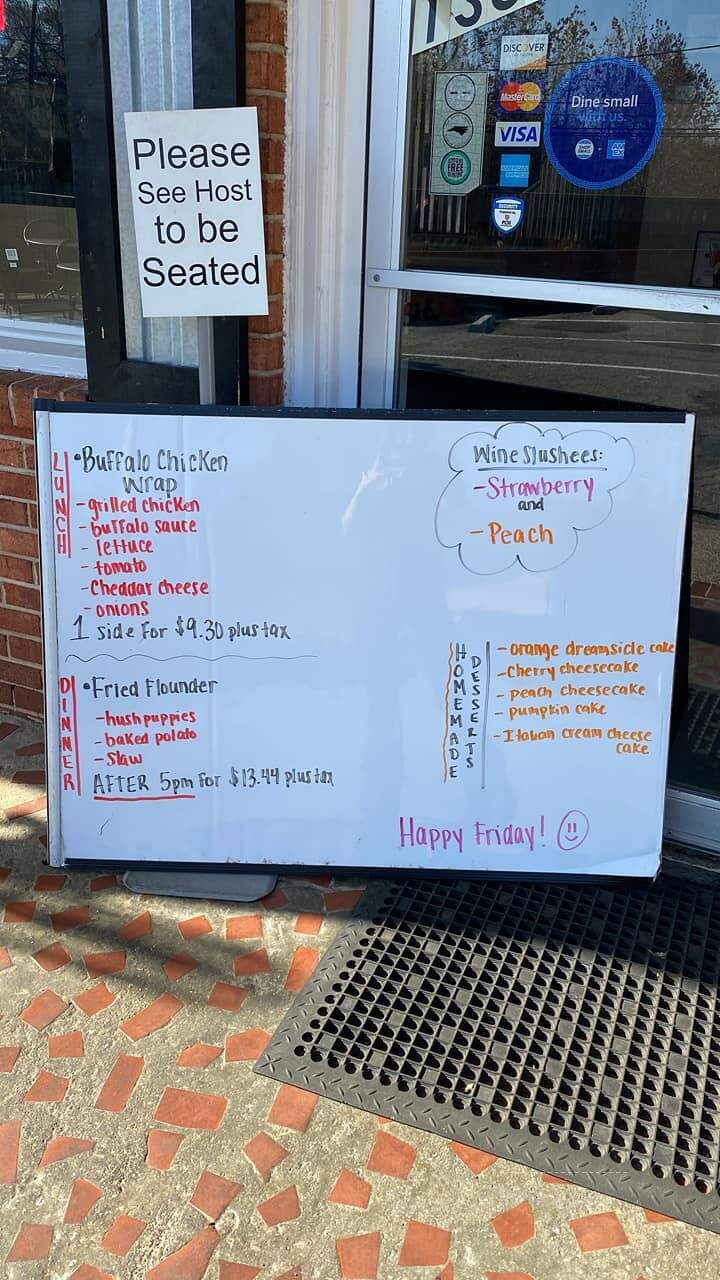 Please
See Host
to be
Seated
DISCOVER
MasterCard
VISA
AMERICAN EXPRESS
SECURITY
Dine small
with us
LUNCH
•Buffalo Chicken
wrap
-grilled chicken
-buffalo sauce
- lettuce
-tomato
-Cheddar cheese
-onions
1 side for $9.30 plus tax
DINNER
•Fried Flounder
-hushpuppies
-baked potato
-slaw
AFTER 5pm for $13.44 plus tax
Wine Slushees:
-Strawberry
and
- Peach
HOMEMADE
DESSERTS
- orange dreamsicle cake
-Cherry cheesecake
- peach cheesecake
- pumpkin cake
-Italian cream cheese
cake
Happy Friday!